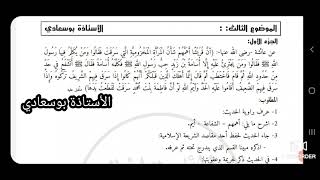 الموضوع الثالث: الأستاذة بوسعادي
الجزء الأول:
عن عائشة -رضي الله عنها- (أن قريشا أهمهم شأن المرأة المخزومية التي سرقت فقالوا ومن يكلم فيها رسول
الله ﷺ فقالوا ومن يجترئ عليه إلا أسامة بن زيد حب رسول الله ﷺ فكلمه أسامة فقال رسول الله ﷺ أتشفع في حد
من حدود الله ثم قام فاختطب ثم قال إنما أهلك الذين قبلكم أنهم كانوا إذا سرق فيهم الشريف تركوه وإذا
سرق فيهم الضعيف أقاموا عليه الحد وايم الله لو أن فاطمة بنت محمد سرقت لقطعت يدها)
الأستاذة بوسعادي
المطلوب:
1- عرف راوية الحديث.
2- اشرح ما يلي: أهمهم - الشفاعة - أيم.
3- جاء الحديث لحفظ أحد مقاصد الشريعة الإسلامية:
- اذكره مبينا القسم الذي يندرج تحته ثم عرفه.
4- في الحديث ذكر لجريمة وعقوبتها: